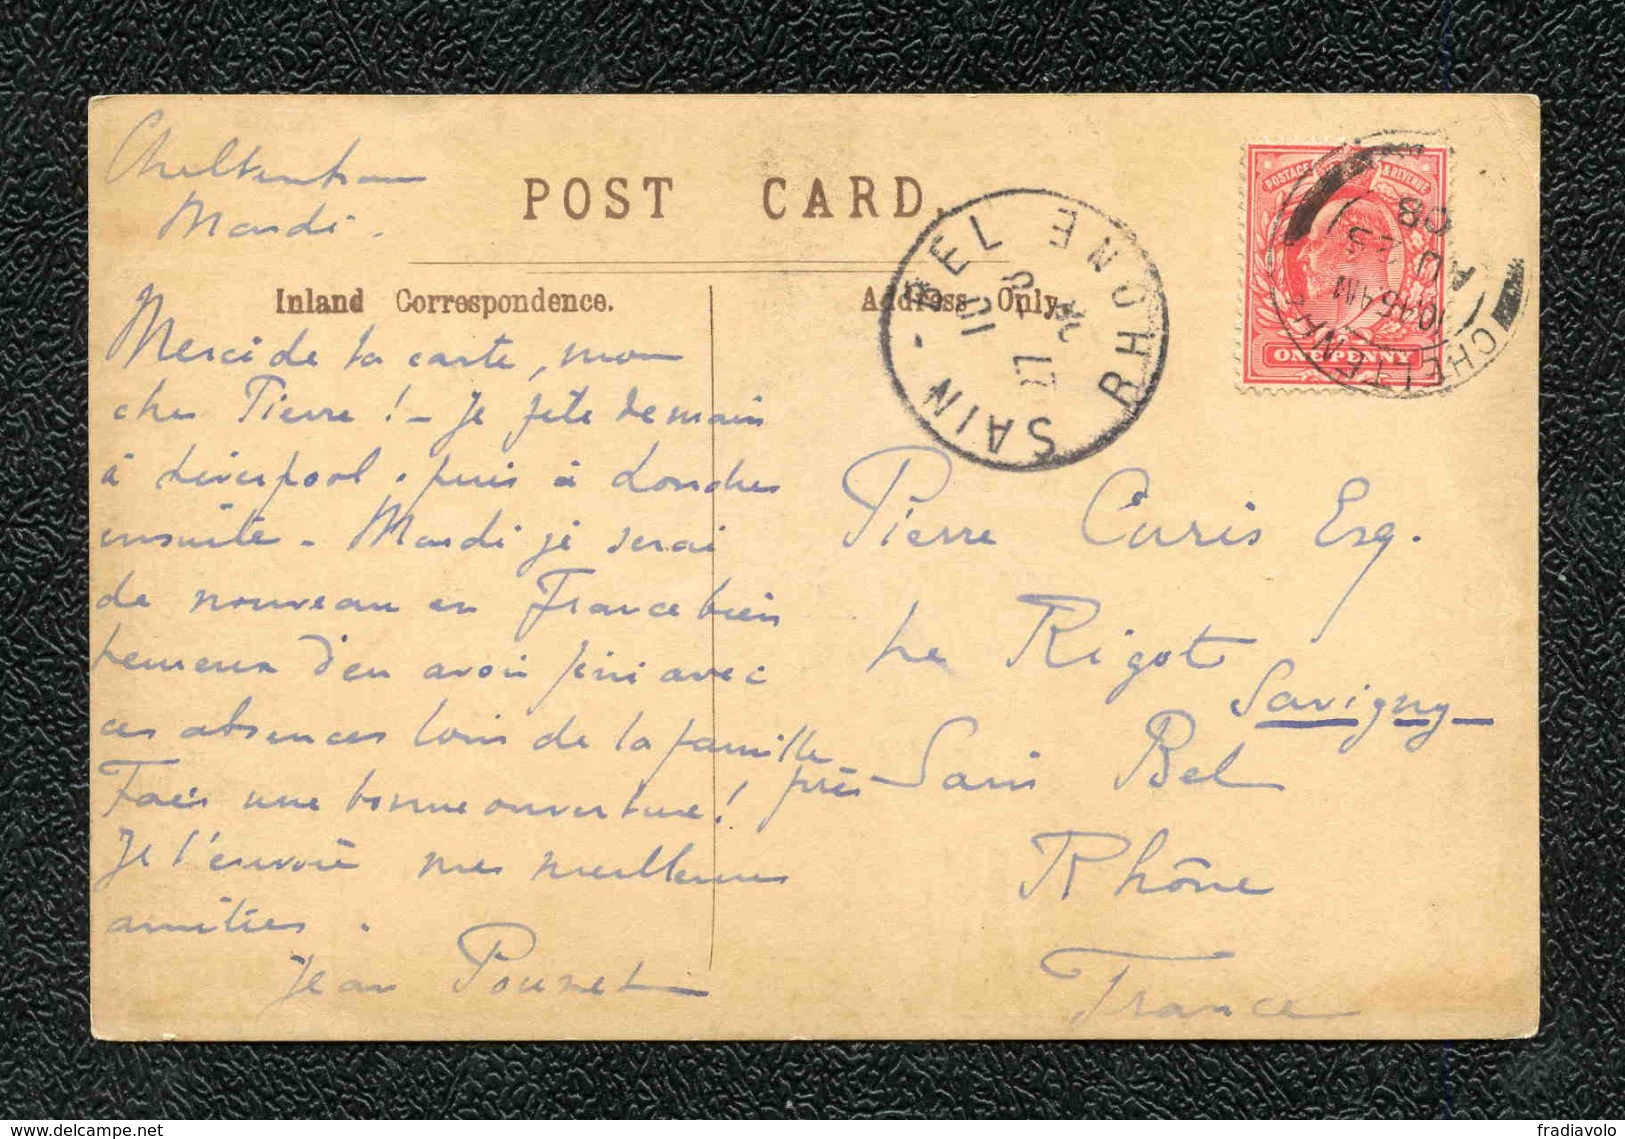 Cheltenham
Mardi.
POST CARD.
Inland Correspondence.
Address Only.
Merci de ta carte, mon
cher Pierre! - Je file demain
à Liverpool. puis à Londres
ensuite - Mardi je serai
de nouveau en France bien
heureux d'en avoir fini avec
ces absences loin de la famille
Fais une bonne ouverture!
Je t'envoie mes meilleures
amitiés.
Jean
SAIN-BEL
RHONE
27
POSTAGE & REVENUE
ONE PENNY
CHELTENHAM
10.45 AM
AU 25
08
Pierre Curis Esq.
Le Rigot
Savigny
près Sain Bel
Rhône
France
www.delcampe.net
fradiavolo